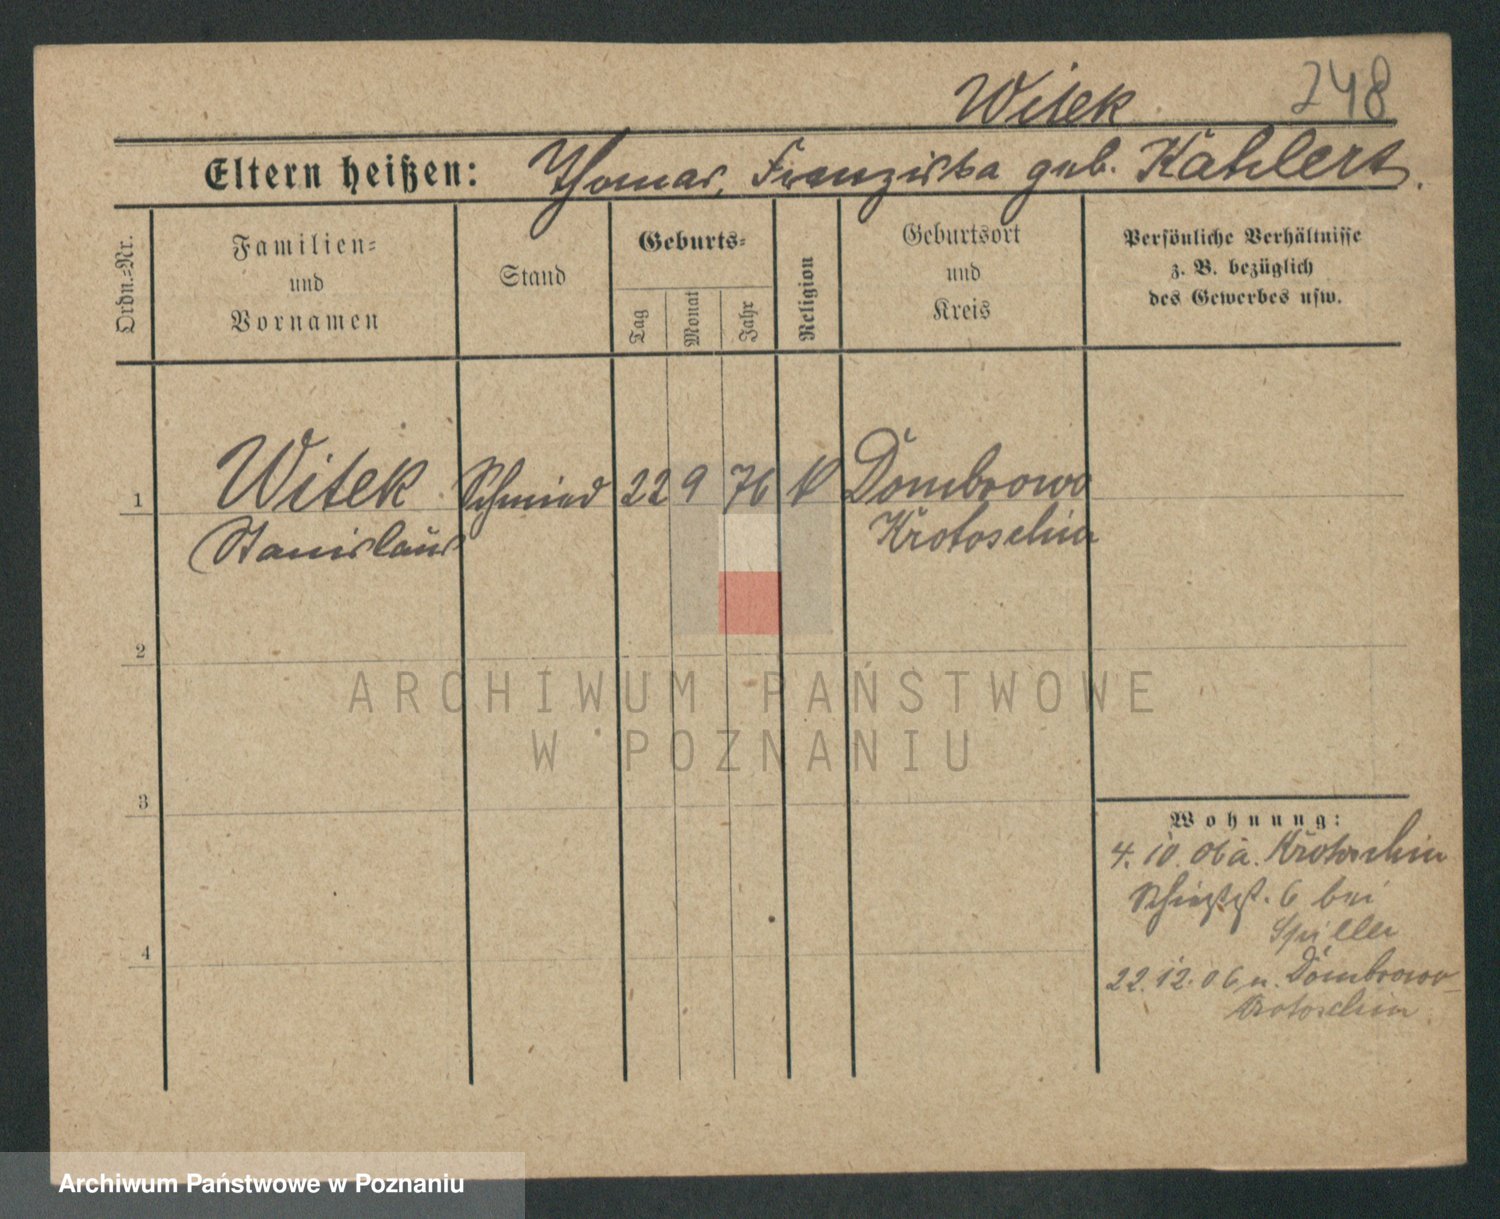 Witek 248
Eltern heißen: Thomas, Franziska geb. Kahlert.
Ordn.-Nr.
Familien-
und
Vornamen
Stand
Geburts-
Tag
Monat
Jahr
Religion
Geburtsort
und
Kreis
Persönliche Verhältnisse
z. B. bezüglich
des Gewerbes usw.
1 Witek Schmied 22 9 76 K Dombrowo
Stanislaus Krotoschin
2
ARCHIWUM PAŃSTWOWE
W POZNANIU
3
Wohnung:
4. 10. 06 a. Krotoschin
6 bei
Spiller
4
22. 12. 06 n. Dombrowo
Krotoschin
Archiwum Państwowe w Poznaniu